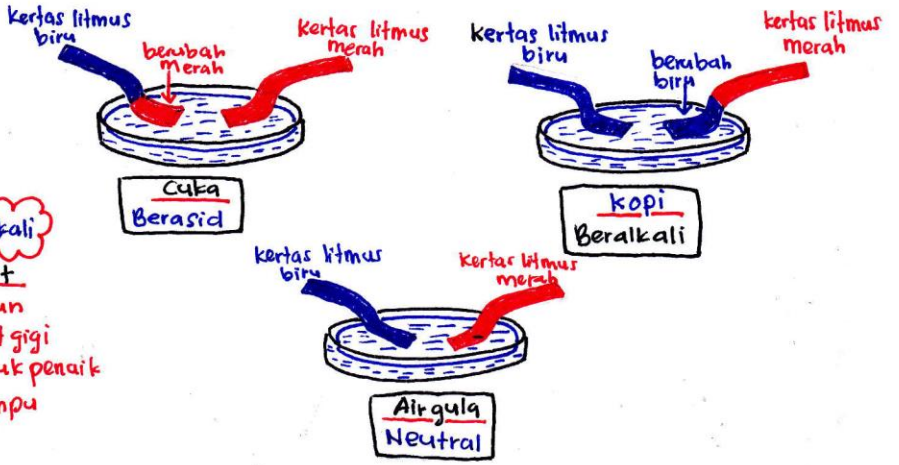 kertas litmus
biru
berubah
merah
kertas litmus
merah
Cuka
Berasid
kertas litmus
biru
berubah
biru
kertas litmus
merah
kopi
Beralkali
kertas litmus
biru
kertas litmus
merah
Air gula
Neutral
gigi
penaik